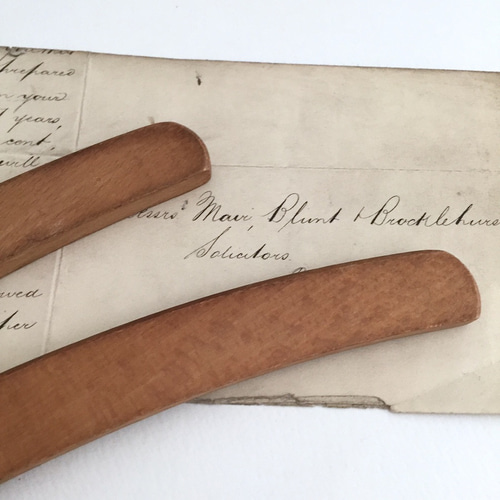 prepared
in your
years,
cont,
will
Mair, Blunt & Brocklehurs
Solicitors.